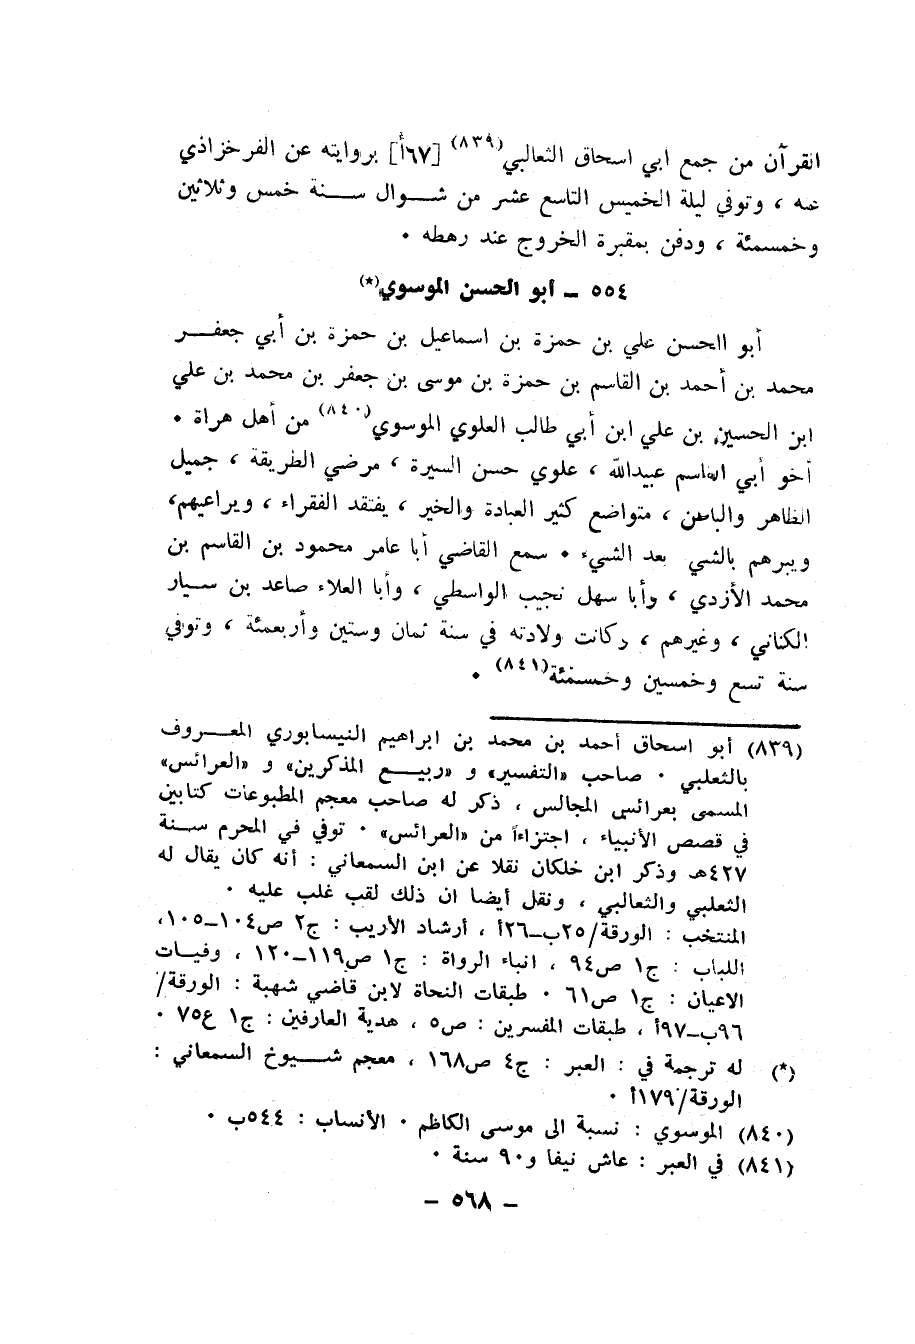 القرآن من جمع ابي اسحاق الثعالبي(٨٣٩) [٦٧أ] بروايته عن الفرخزاذي
عنه ، وتوفي ليلة الخميس التاسع عشر من شوال سنة خمس وثلاثين
وخمسمئة ، ودفن بمقبرة الخروج عند رهطه ٠
٥٥٤ ــ أبو الحسن الموسوي(*)
أبو الحسن علي بن حمزة بن اسماعيل بن حمزة بن أبي جعفر
محمد بن أحمد بن القاسم بن حمزة بن موسى بن جعفر بن محمد بن علي
ابن الحسين بن علي ابن أبي طالب العلوي الموسوي(٨٤٠) من أهل هراة ٠
أخو أبي القاسم عبيدالله ، علوي حسن السيرة ، مرضي الطريقة ، جميل
الظاهر والباطن ، متواضع كثير العبادة والخير ، يفتقد الفقراء ، ويراعيهم،
ويبرهم بالشي بعد الشيء ٠ سمع القاضي أبا عامر محمود بن القاسم بن
محمد الأزدي ، وأبا سهل نجيب الواسطي ، وأبا العلاء صاعد بن سيار
الكناني ، وغيرهم ، وكانت ولادته في سنة ثمان وستين وأربعمئة ، وتوفي
سنة تسع وخمسين وخمسمئة(٨٤١) ٠
(٨٣٩) أبو اسحاق أحمد بن محمد بن ابراهيم النيسابوري المعروف
بالثعلبي ٠ صاحب «التفسير» و «ربيع المذكرين» و «العرائس»
المسمى بعرائس المجالس ، ذكر له صاحب معجم المطبوعات كتابين
في قصص الأنبياء ، اجتزاءاً من «العرائس» ٠ توفي في المحرم سنة
٤٢٧هـ وذكر ابن خلكان نقلا عن ابن السمعاني : أنه كان يقال له
الثعلبي والثعالبي ، ونقل أيضا ان ذلك لقب غلب عليه ٠
المنتخب : الورقة/٢٥ب–٢٦أ ، أرشاد الأريب : ج٢ ص١٠٤–١٠٥،
اللباب : ج١ ص٩٤ ، انباء الرواة : ج١ ص١١٩–١٢٠ ، وفيات
الاعيان : ج١ ص٦١ ٠ طبقات النحاة لابن قاضي شهبة : الورقة/
٩٦ب–٩٧أ ، طبقات المفسرين : ص٥ ، هدية العارفين : ج١ ع٧٥ ٠
(*) له ترجمة في : العبر : ج٤ ص١٦٨ ، معجم شيوخ السمعاني :
الورقة/١٧٩أ ٠
(٨٤٠) الموسوي : نسبة الى موسى الكاظم ٠ الأنساب : ٥٤٤ب ٠
(٨٤١) في العبر : عاش نيفا و٩٠ سنة ٠
– ٥٦٨ –